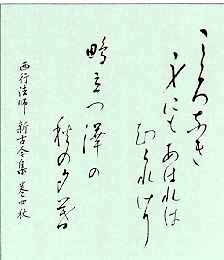 こころなき
身にもあはれは
しられけり
鴫立つ澤の
秋の夕暮
西行法師 新古今集 巻四秋